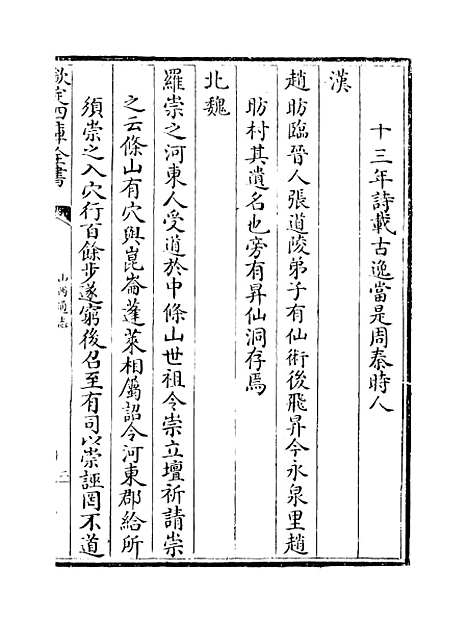 十三年詩載古逸當是周秦時人
漢
趙昉臨晉人張道陵弟子有仙術後飛昇今永泉里趙
昉村其遺名也旁有昇仙洞存焉
北魏
羅崇之河東人受道於中條山世祖令崇立壇祈請崇
之云條山有穴與崑崙蓬萊相屬詔令河東郡給所
須崇之入穴行百餘步遂窮後召至有司以崇誣罔不道
欽定四庫全書
山西通志
二